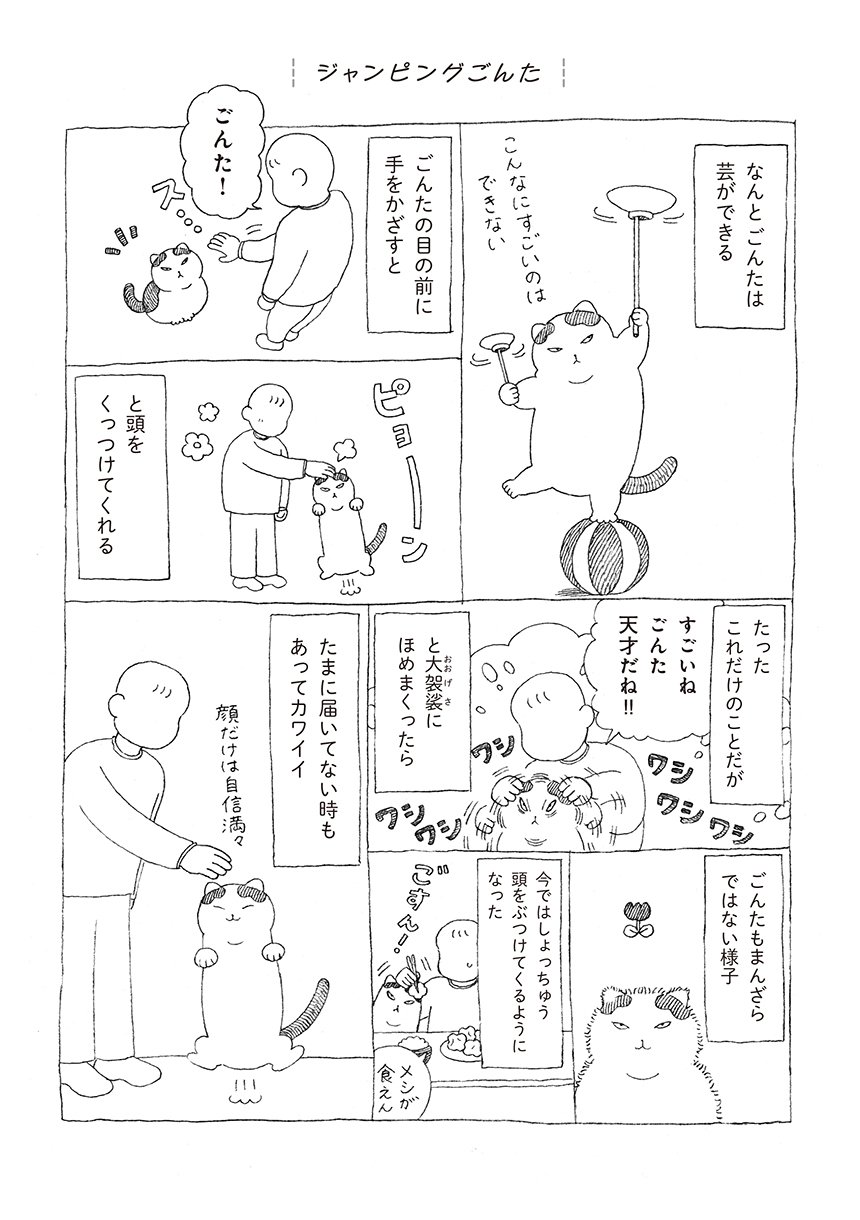 ジャンピングごんた
なんと ごんたは
芸ができる
こんなにすごいのは
できない
ごんたの目の前に
手をかざすと
ごんた！
ス…
ピョーーン
と頭を
くっつけてくれる
たった
これだけのことだが
すごいね
ごんた
天才だね!!
と大袈裟に
おおげさ
ほめまくったら
ワシ
ワシ
ワシ
ワシ
ワシ
ワシ
ごんたもまんざら
ではない様子
今ではしょっちゅう
頭をぶつけてくるように
なった
ごすん！
メシが
食えん
たまに届いてない時も
あってカワイイ
顔だけは自信満々